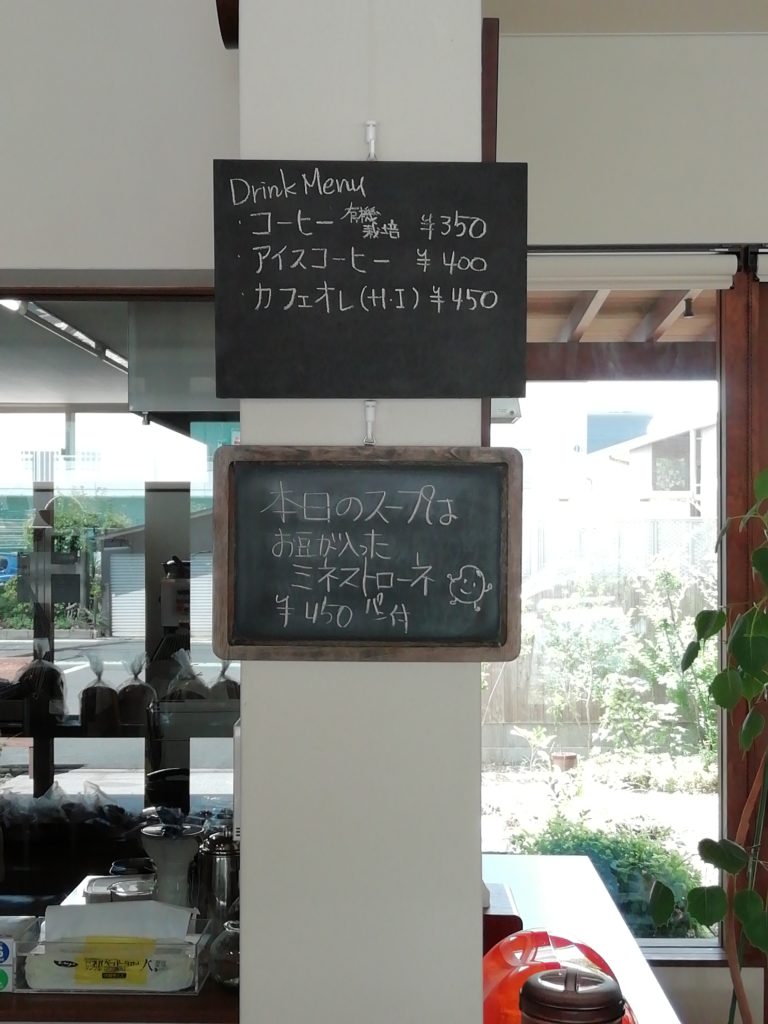 Drink Menu
・コーヒー 有機栽培 ¥350
・アイスコーヒー ¥400
・カフェオレ(H・I) ¥450
本日のスープは
お豆が入った
ミネストローネ
¥450 パン付